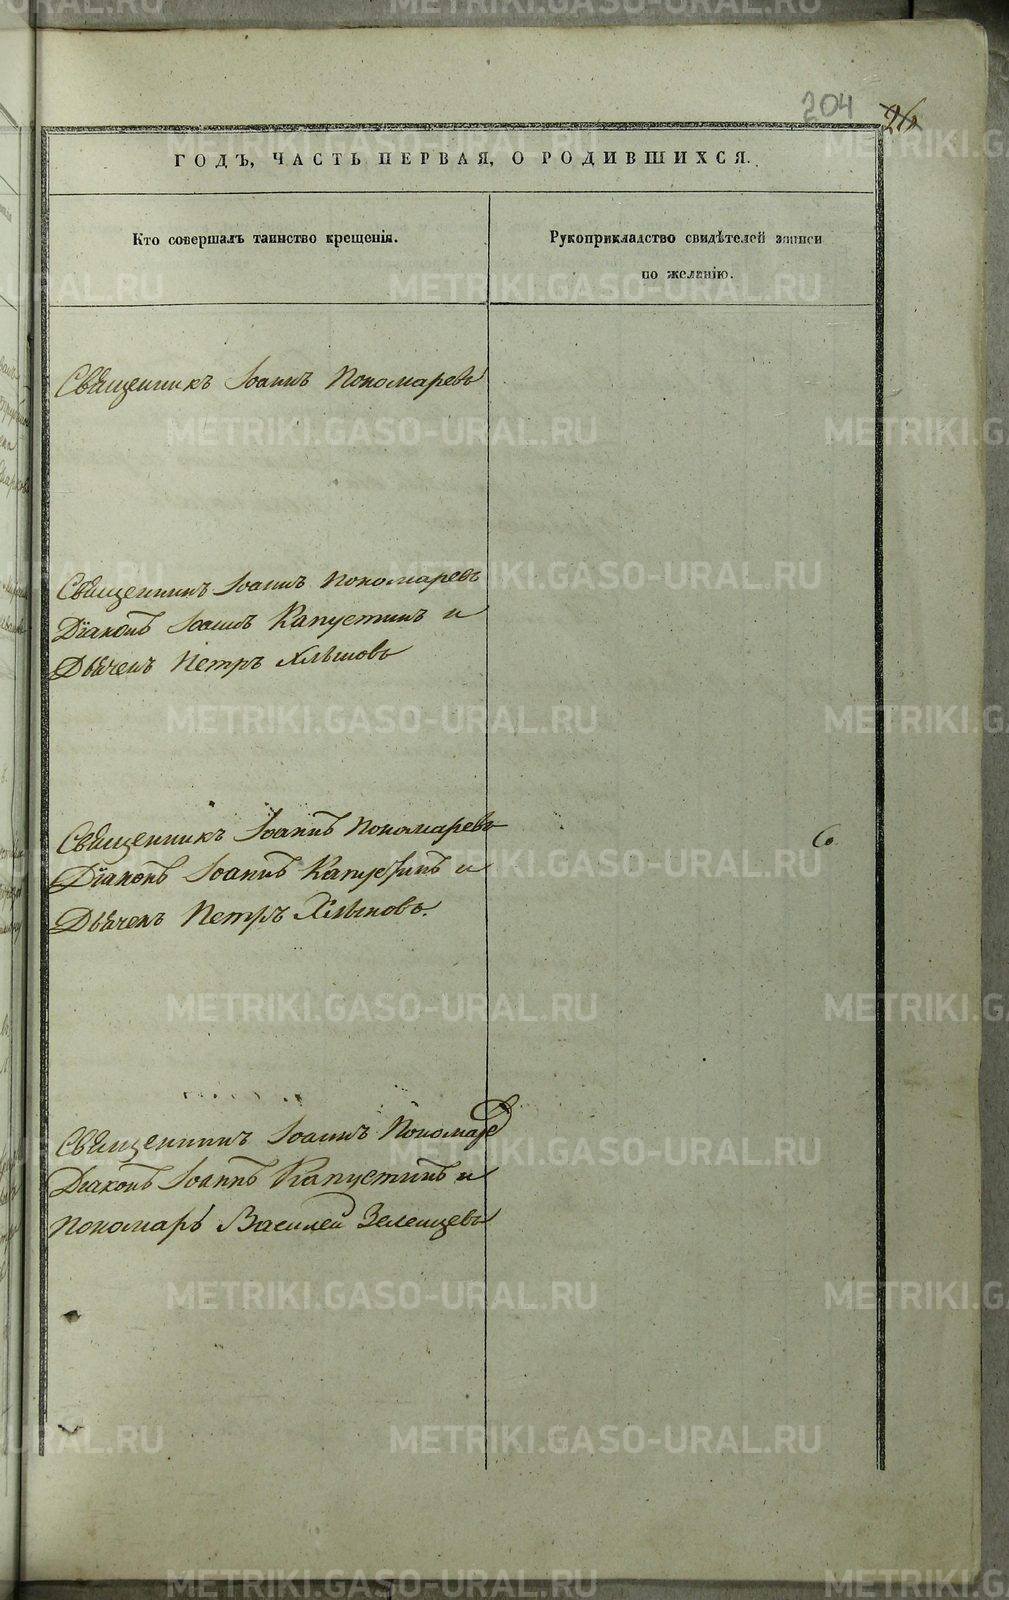 204 26
ГОДЪ, ЧАСТЬ ПЕРВАЯ, О РОДИВШИХСЯ.
Кто совершалъ таинство крещенія.
Рукоприкладство свидѣтелей записи
по желанію.
Священникъ Іоаннъ Пономаревъ
Священникъ Іоаннъ Пономаревъ
Діаконъ Іоаннъ Капустинъ и
Дьячекъ Петръ Хлыновъ
Священникъ Іоаннъ Пономаревъ
Діаконъ Іоаннъ Капустинъ и
Дьячекъ Петръ Хлыновъ.
Священникъ Іоаннъ Пономаре
Діаконъ Іоаннъ Капустинъ и
Пономарь Василей Зеленцевъ
METRIKI.GASO-URAL.RU